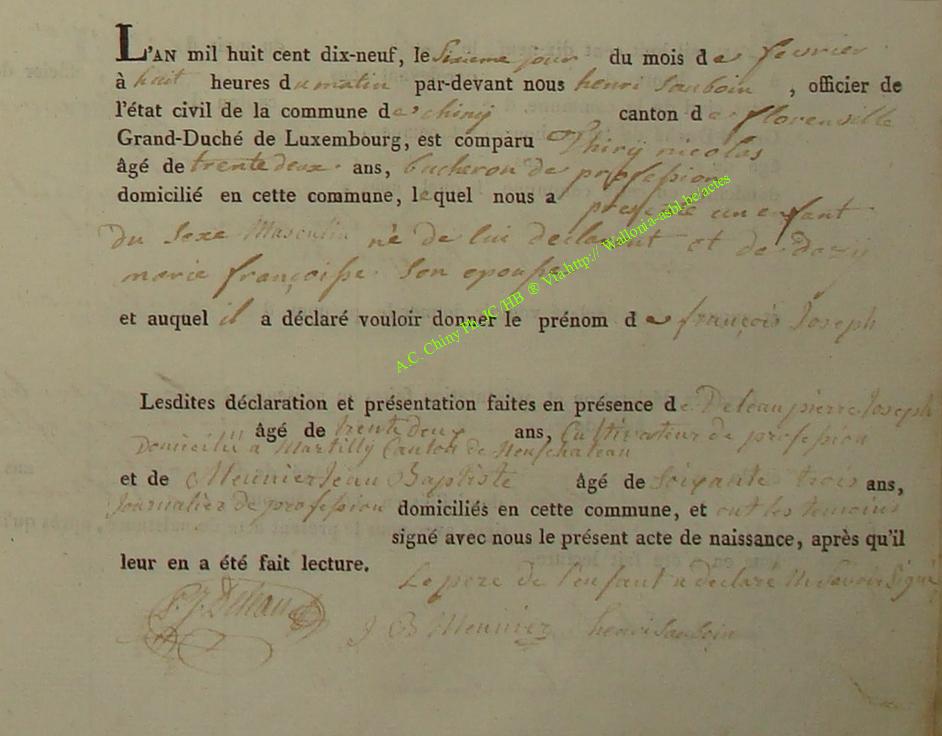 L'AN mil huit cent dix-neuf, le Sixieme jour du mois de fevrier
à huit heures du matin par-devant nous henri Sauboin , officier de
l'état civil de la commune de chinÿ canton de florenville
Grand-Duché de Luxembourg, est comparu Thirÿ nicolas
âgé de trente deux ans, bucheron de profession
domicilié en cette commune, lequel nous a presenté un enfant
du Sexe Masculin né de lui declarant et de dozÿ
marie françoisse son epousse
et auquel il a déclaré vouloir donner le prénom de françois Joseph
Lesdites déclaration et présentation faites en présence de Deleau pierre Joseph
âgé de trente deux ans, Cultivateur de profession
Domicilié a Martilly Canton de Neufchateau
et de Meunier Jean Baptiste âgé de Soixante trois ans,
Journalier de profession domiciliés en cette commune, et ont les temoins
signé avec nous le présent acte de naissance, après qu'il
leur en a été fait lecture.
Le pere de l'enfant a declaré ne Savoir Signé
P. J. Deleau
J B Meunier henri Sauboin
A.C. Chiny Ph. JC /HB ® Via http:// Wallonia-asbl.be/actes